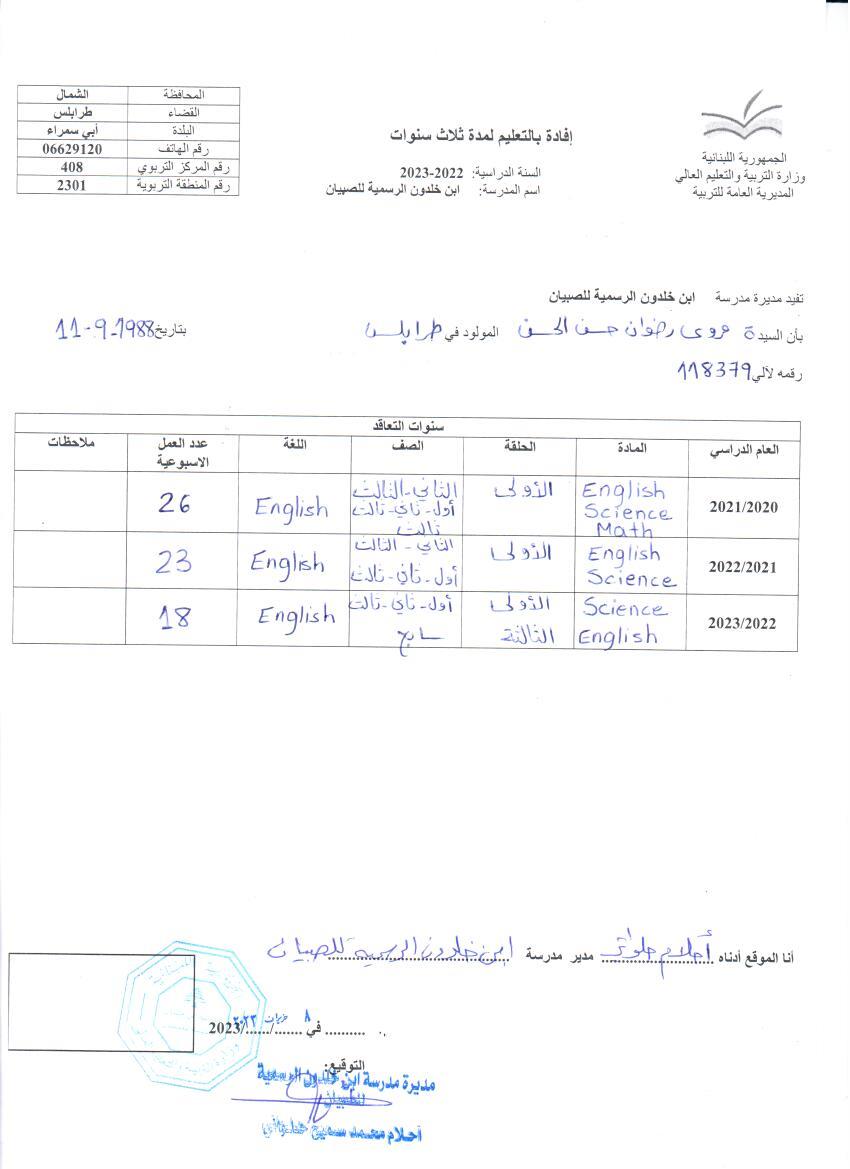 الجمهورية اللبنانية
وزارة التربية والتعليم العالي
المديرية العامة للتربية
إفادة بالتعليم لمدة ثلاث سنوات
السنة الدراسية: 2022-2023
اسم المدرسة: ابن خلدون الرسمية للصبيان
المحافظة الشمال
القضاء طرابلس
البلدة أبي سمراء
رقم الهاتف 06629120
رقم المركز التربوي 408
رقم المنطقة التربوية 2301
تفيد مديرة مدرسة ابن خلدون الرسمية للصبيان
بأن السيدة مروى رضوان حسن الحسن المولود في طرابلس بتاريخ 11-9-1988
رقمه لآلي 118379
سنوات التعاقد
العام الدراسي المادة الحلقة الصف اللغة عدد العمل الاسبوعية ملاحظات
2021/2020 English الأولى الثاني-الثالث English 26
Science أول-ثاني-ثالث
Math ثالث
2022/2021 English الأولى الثاني-الثالث English 23
Science أول-ثاني-ثالث
2023/2022 Science الأولى أول-ثاني-ثالث English 18
English الثالثة سابع
أنا الموقع أدناه أحلام حلواني مدير مدرسة ابن خلدون الرسمية للصبيان
.......... في ....../....../2023
٨ حزيران ٢٠٢٣
التوقيع:
مديرة مدرسة ابن خلدون الرسمية
للصبيان
أحلام محمد سميح حلواني